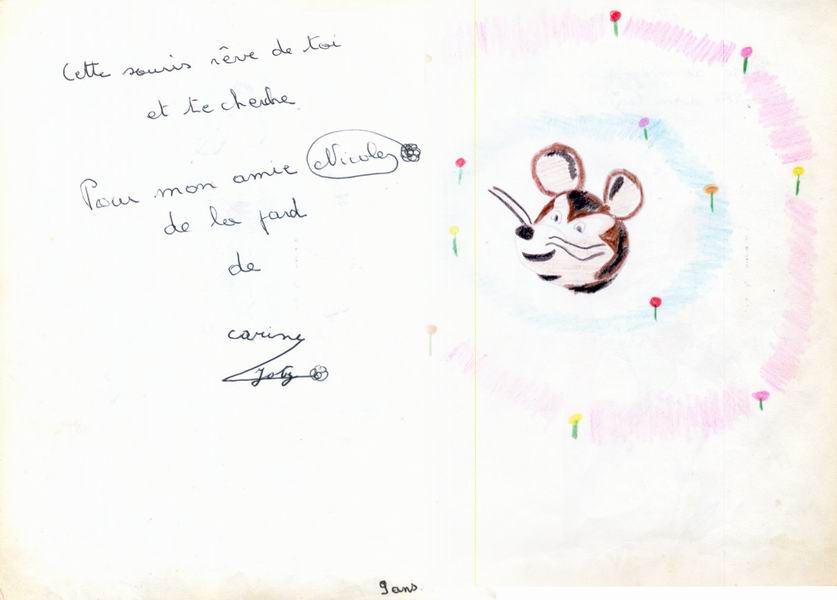 Cette souris rêve de toi
et te cherche
Pour mon amie Nicole
de la part
de
carine
Joly
9 ans.